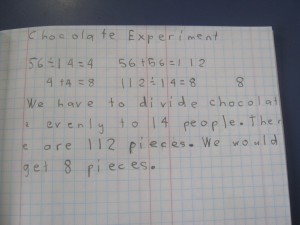 Chocolate Experiment
56÷14=4 56+56=112
4+4=8 112÷14=8 8
We have to divide chocolat
e evenly to 14 people. Ther
e are 112 pieces. We would
get 8 pieces.